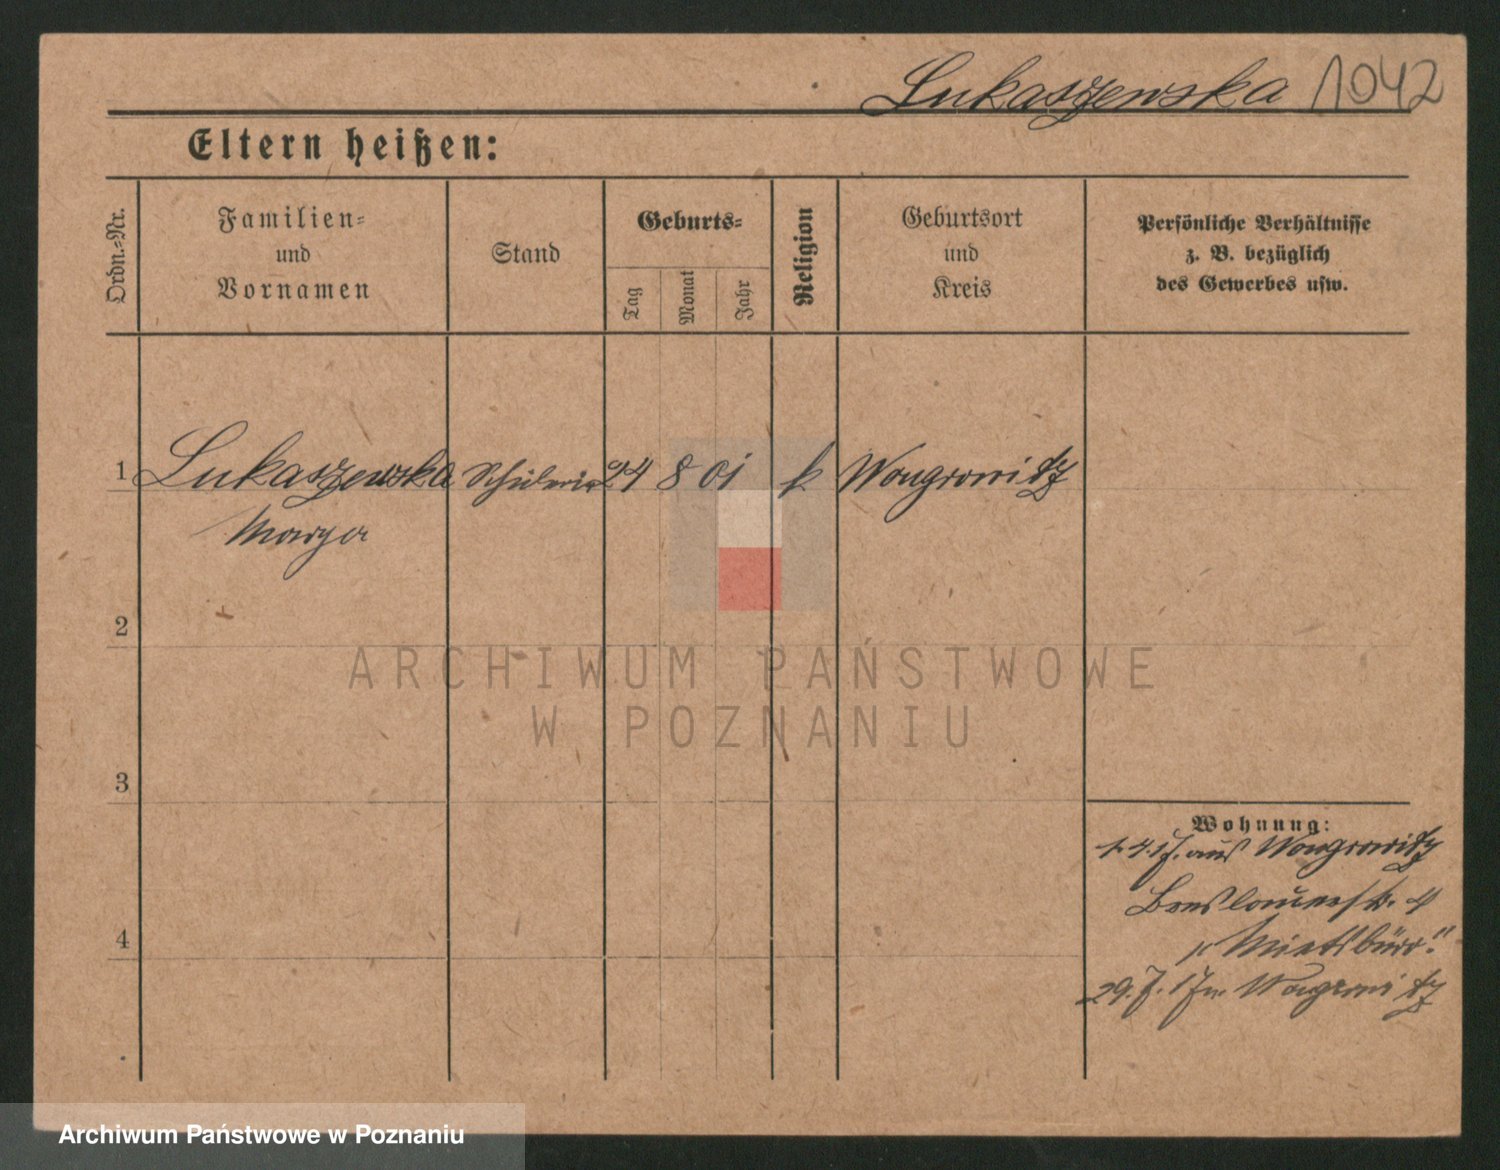 Lukaszewska 1042
Eltern heißen:
Ordn.-Nr.
Familien-
und
Vornamen
Stand
Geburts-
Tag
Monat
Jahr
Religion
Geburtsort
und
Kreis
Persönliche Verhältnisse
z. B. bezüglich
des Gewerbes usw.
1 Lukaszewska Schülerin 24 8 01 k Wongrowitz
Marya
2
ARCHIWUM PAŃSTWOWE
W POZNANIU
3
Wohnung:
1.4.17. aus Wongrowitz
Breslauerstr. 4
"Mietsbüro."
29.7.17 n. Wongrowitz
4
Archiwum Państwowe w Poznaniu